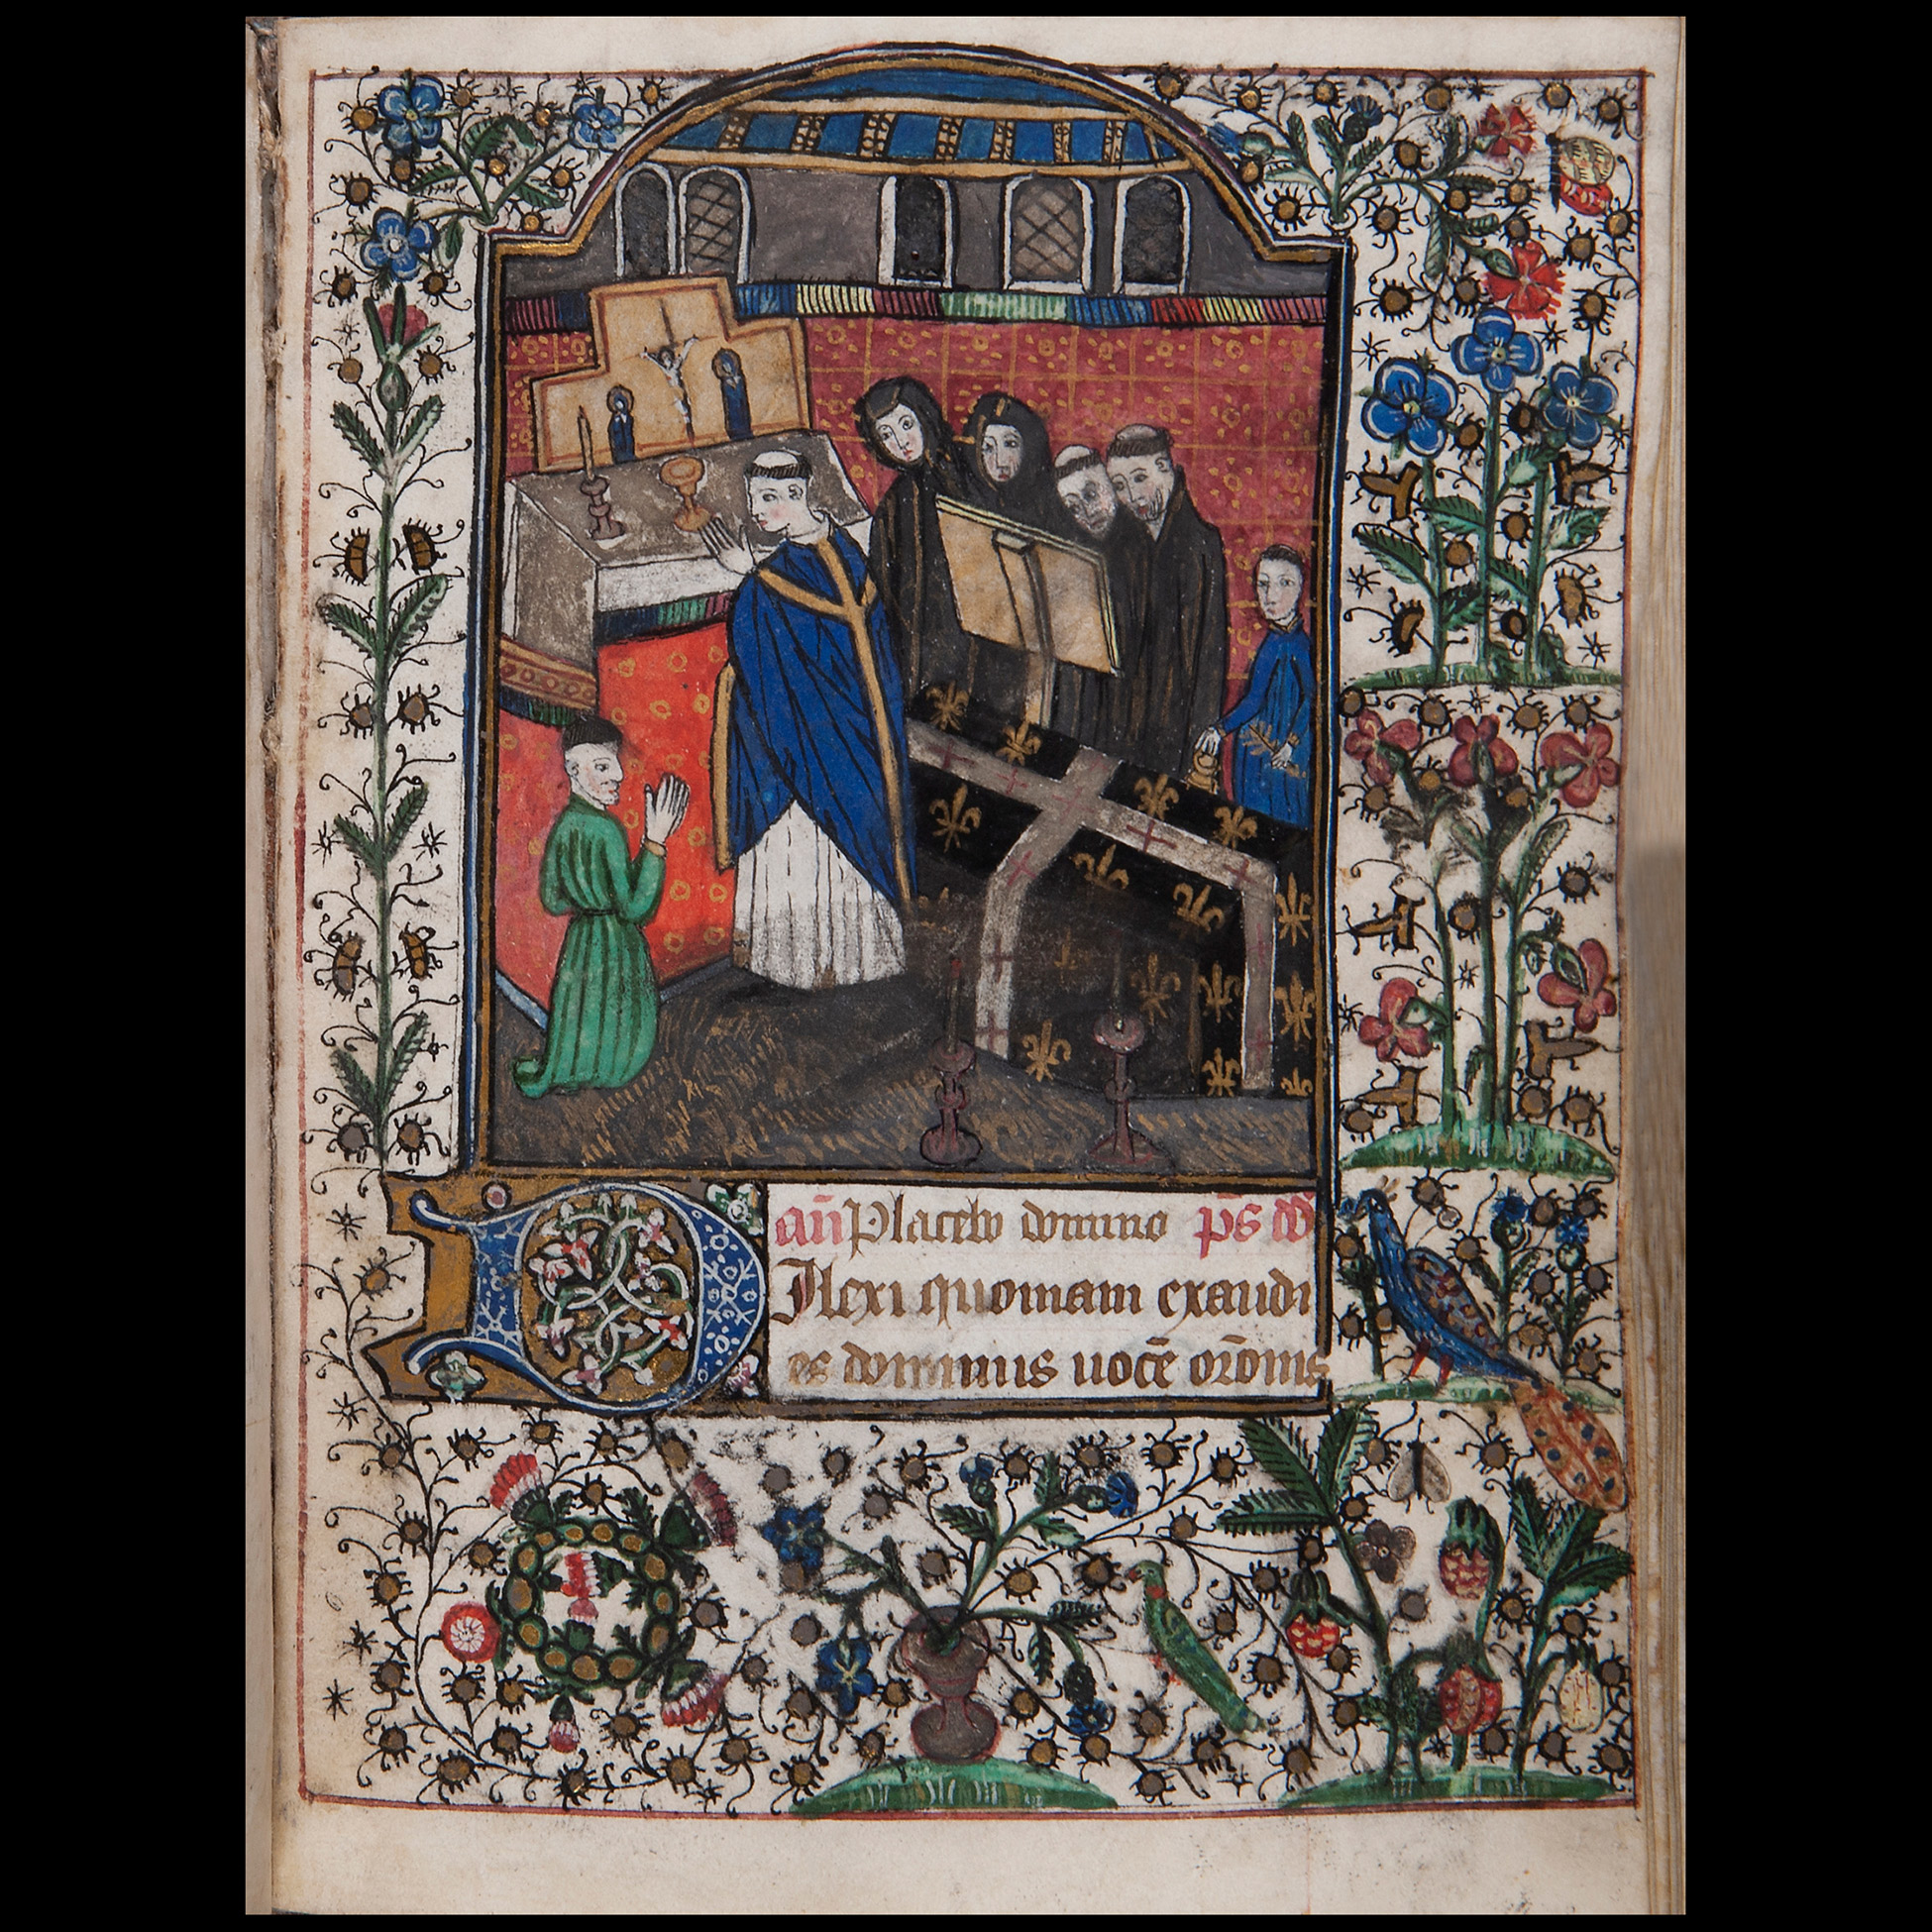 añ Placebo domino p̄s dd̄
Dilexi quoniam exaudi
es dominus uocē orōnis